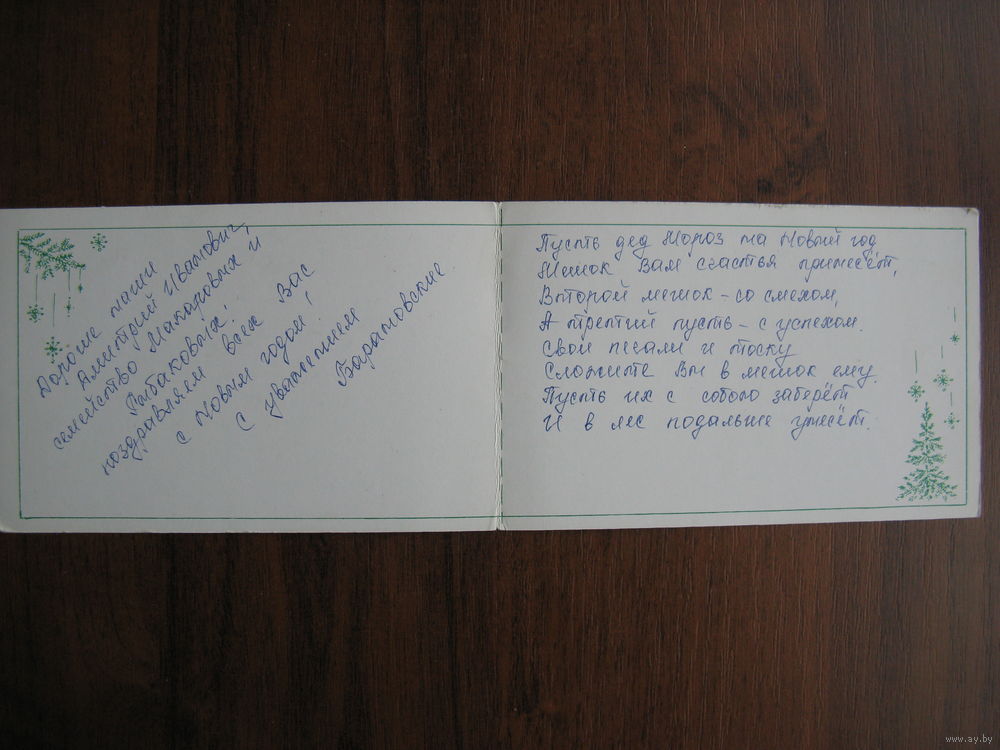 Дорогие наши
Дмитрий Иванович,
семейство Макаровых и
Рыбаковых!
поздравляем всех Вас
с Новым годом!
с уважением
Барановские.
Пусть дед Мороз на Новый год
Мешок Вам счастья принесёт,
Второй мешок - со смехом,
А третий пусть - с успехом.
Свои печали и тоску
Сложите Вы в мешок ему.
Пусть их с собою заберёт
И в лес подальше унесёт.
www.ay.by